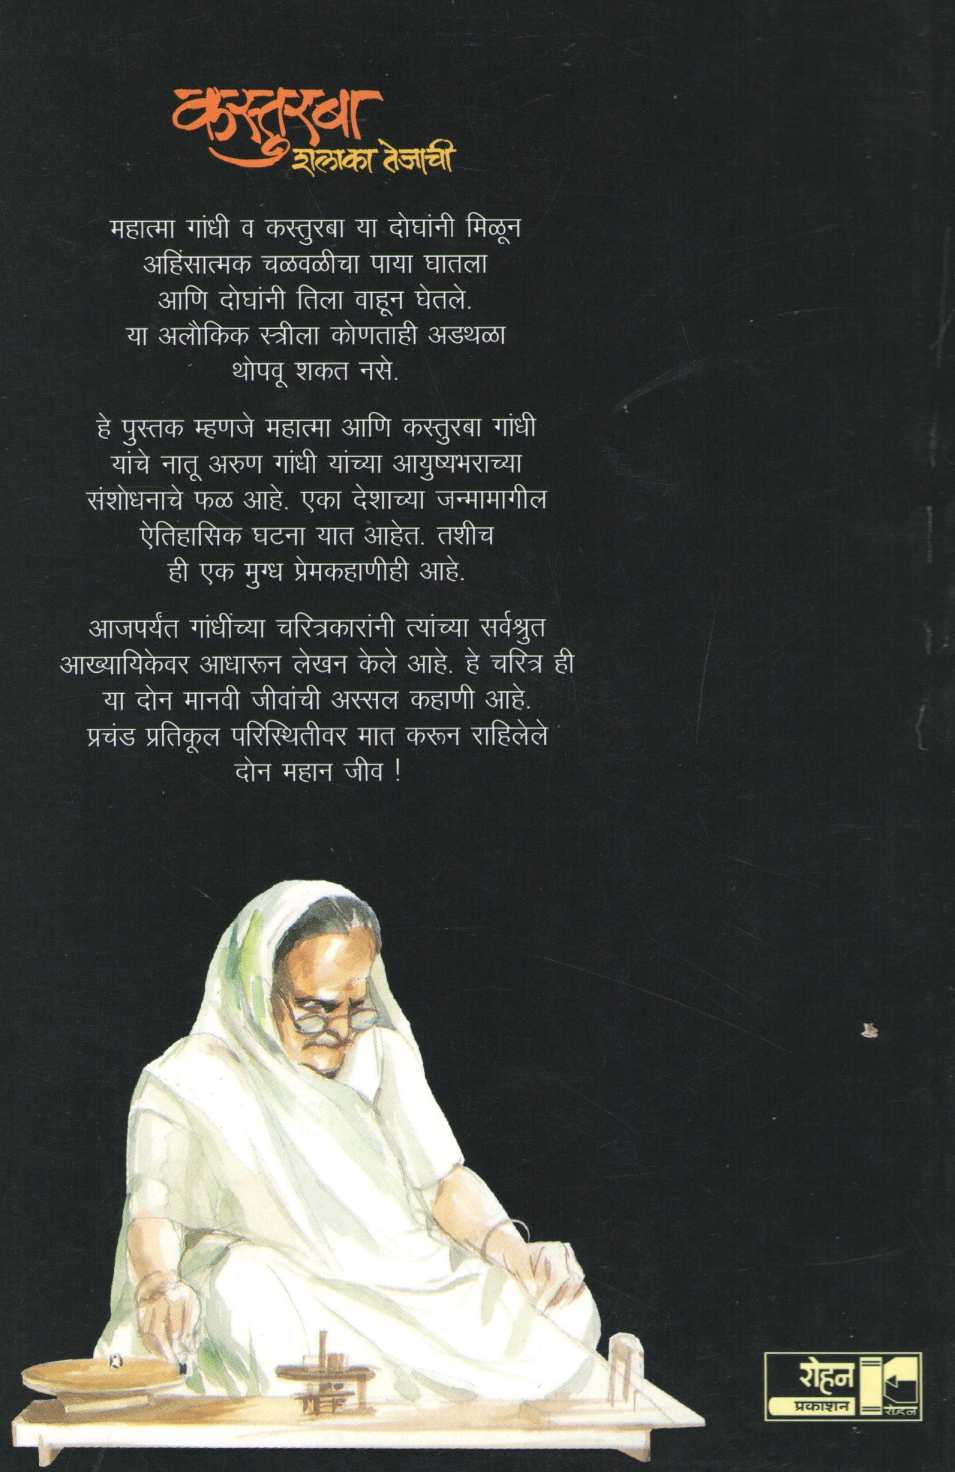 कस्तुरबा
शलाका तेजाची
महात्मा गांधी व कस्तुरबा या दोघांनी मिळून
अहिंसात्मक चळवळीचा पाया घातला
आणि दोघांनी तिला वाहून घेतले.
या अलौकिक स्त्रीला कोणताही अडथळा
थोपवू शकत नसे.
हे पुस्तक म्हणजे महात्मा आणि कस्तुरबा गांधी
यांचे नातू अरुण गांधी यांच्या आयुष्यभराच्या
संशोधनाचे फळ आहे. एका देशाच्या जन्मामागील
ऐतिहासिक घटना यात आहेत. तशीच
ही एक मुग्ध प्रेमकहाणीही आहे.
आजपर्यंत गांधींच्या चरित्रकारांनी त्यांच्या सर्वश्रुत
आख्यायिकेवर आधारून लेखन केले आहे. हे चरित्र ही
या दोन मानवी जीवांची अस्सल कहाणी आहे.
प्रचंड प्रतिकूल परिस्थितीवर मात करून राहिलेले
दोन महान जीव !
रोहन
प्रकाशन
रोहन